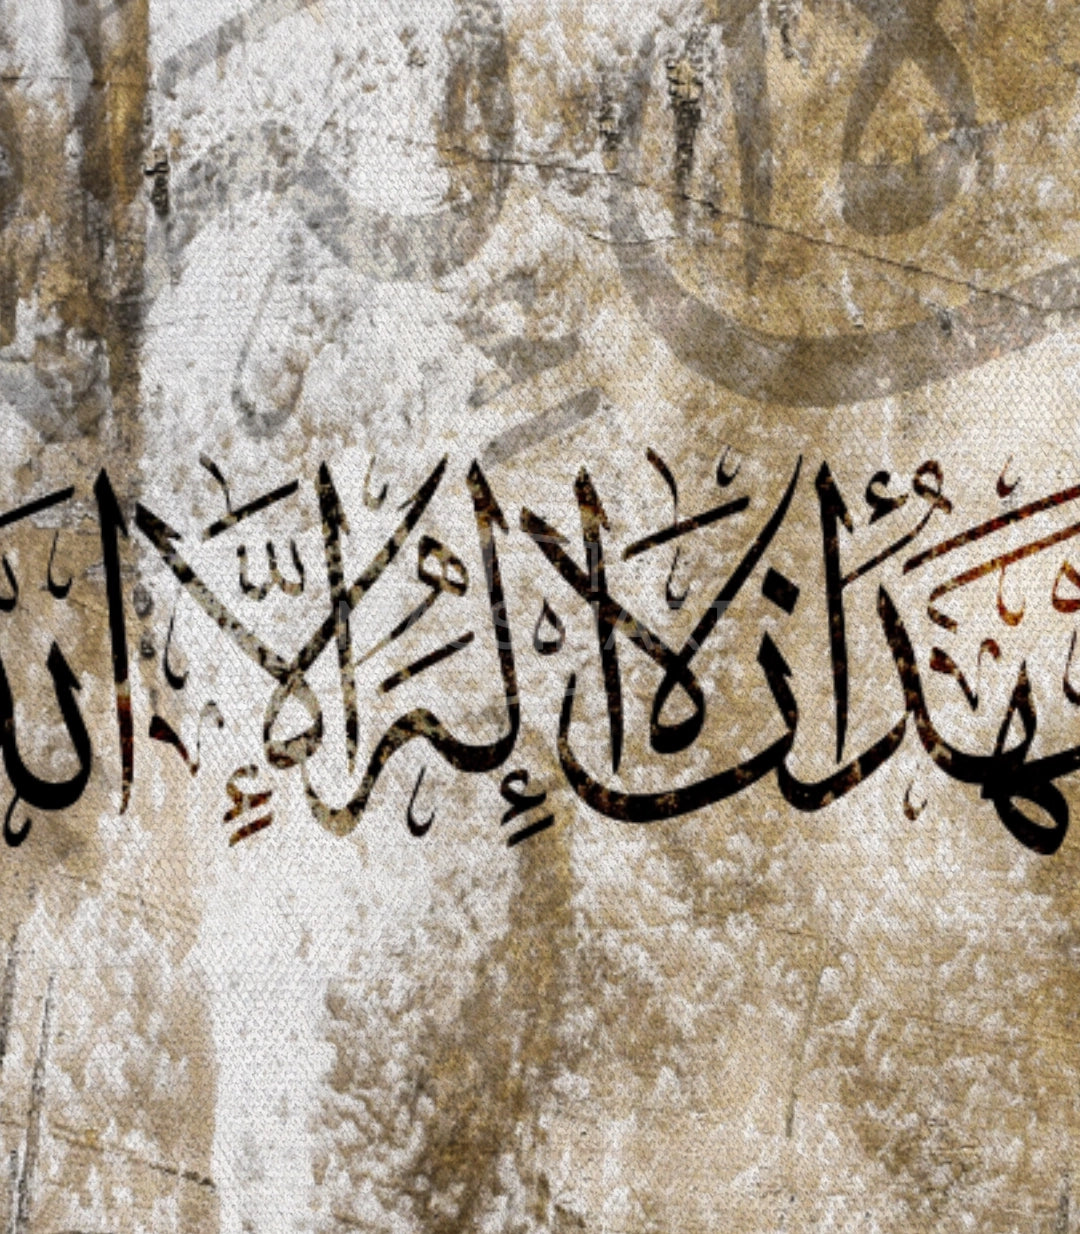 هَدُ أَن لَّا إِلٰهَ إِلَّا الل